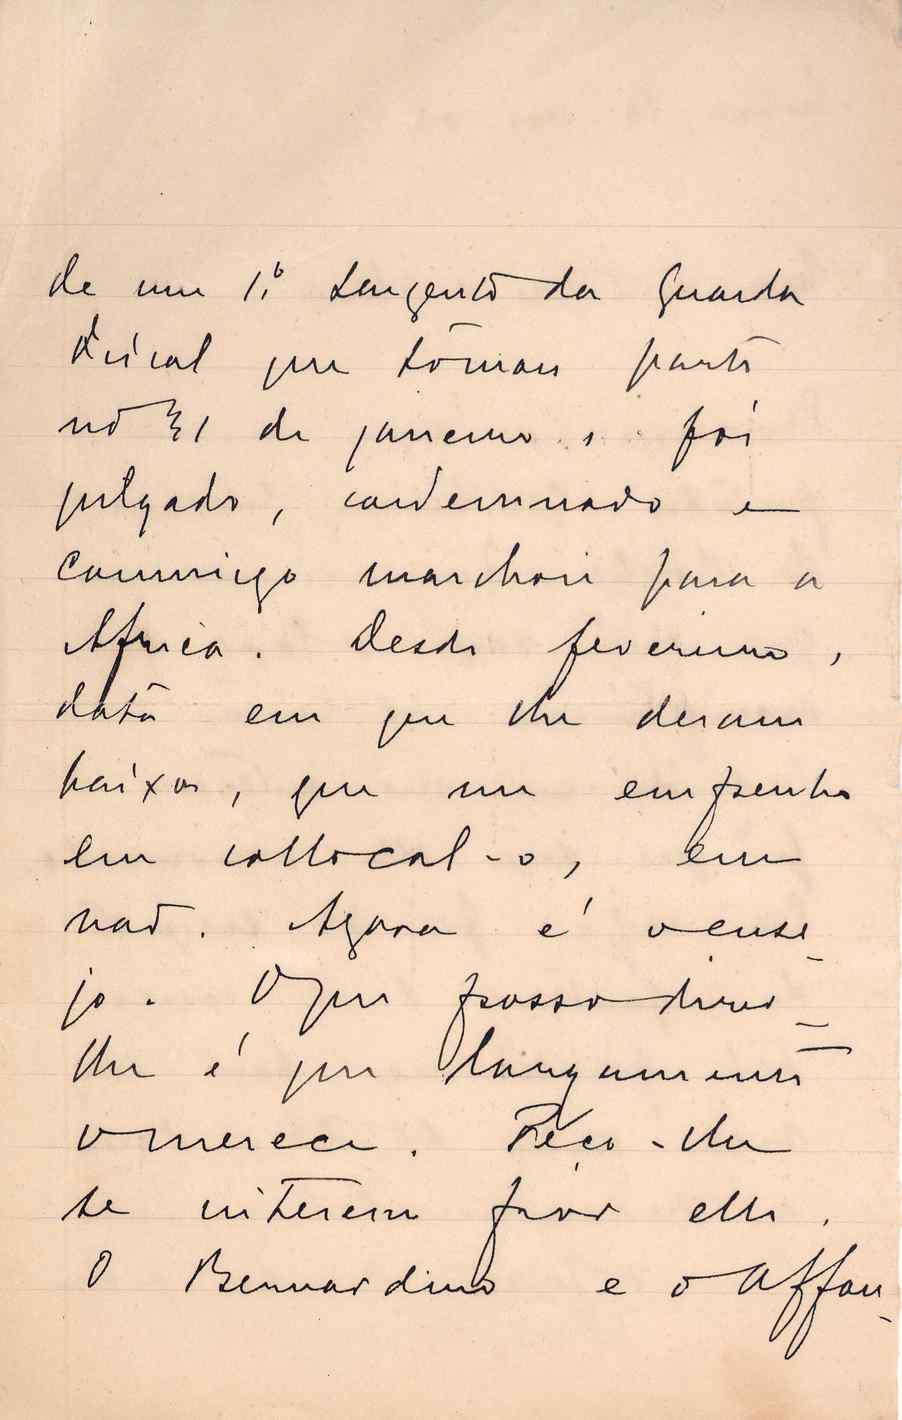 de um 1.º sargento da Guarda
Fiscal que tomou parte
no 31 de janeiro, foi
julgado, condemnado e
commigo marchou para a
Africa. Desde fevereiro,
data em que lhe deram
baixa, que me empenho
em collocal-o, em
vão. Agora é o ense-
jo. O que posso dizer-
lhe é que largamente
o merece. Péço-lhe
se interesse por elle.
O Bernardino e o Affon-